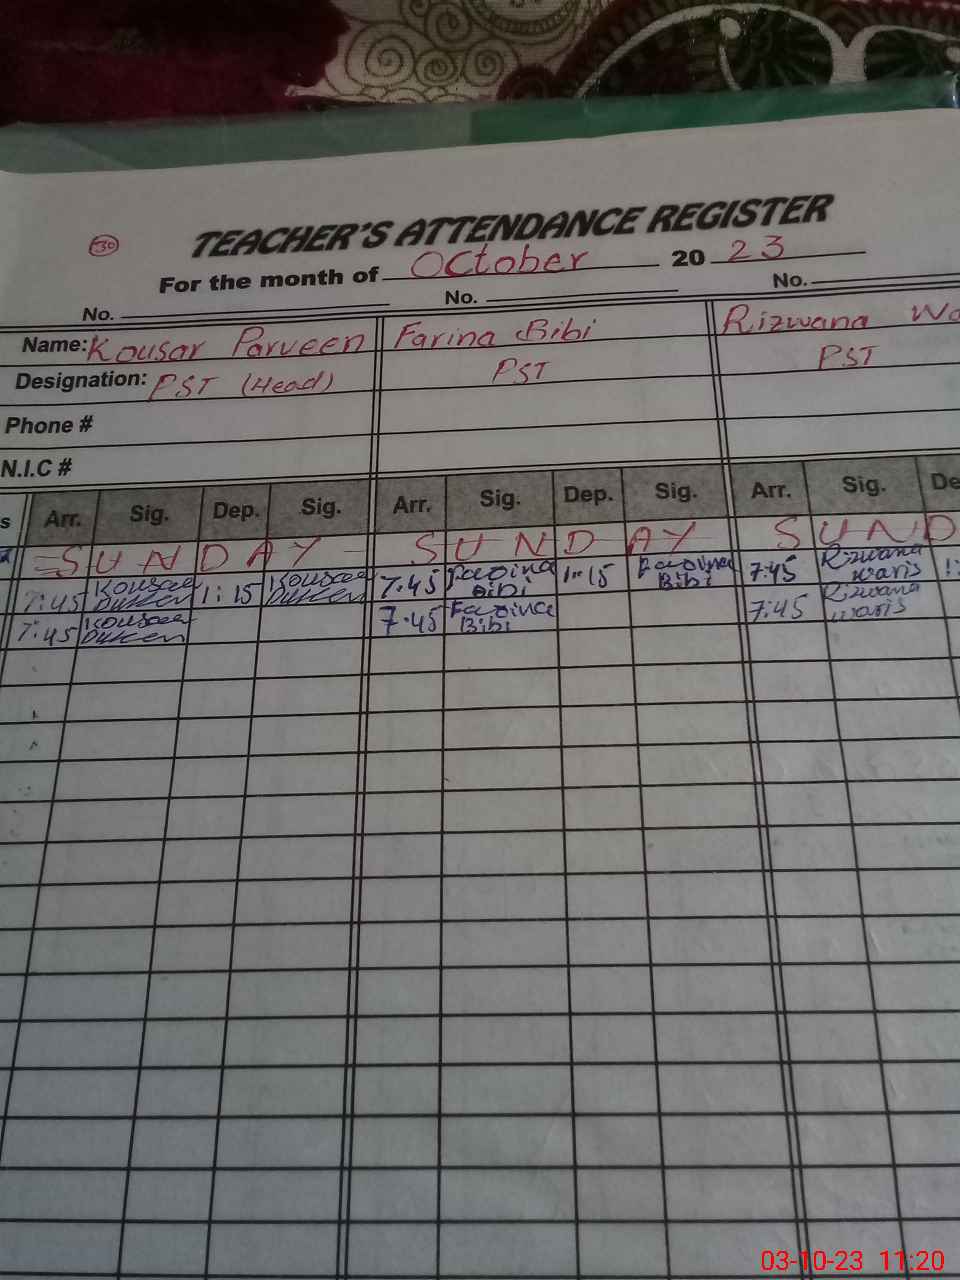 30
TEACHER'S ATTENDANCE REGISTER
For the month of October 20 23
No. No. No.
Name: Kousar Parveen Farina Bibi Rizwana Wa
Designation: PST (Head) PST PST
Phone #
N.I.C #
s Arr. Sig. Dep. Sig. Arr. Sig. Dep. Sig. Arr. Sig. De
SUNDAY SUNDAY SUND
7:45 1:15 7:45 Farina Bibi 1:15 Farina Bibi 7:45 Rizwana waris
7:45 7:45 Farina Bibi 7:45 Rizwana waris
03-10-23 11:20